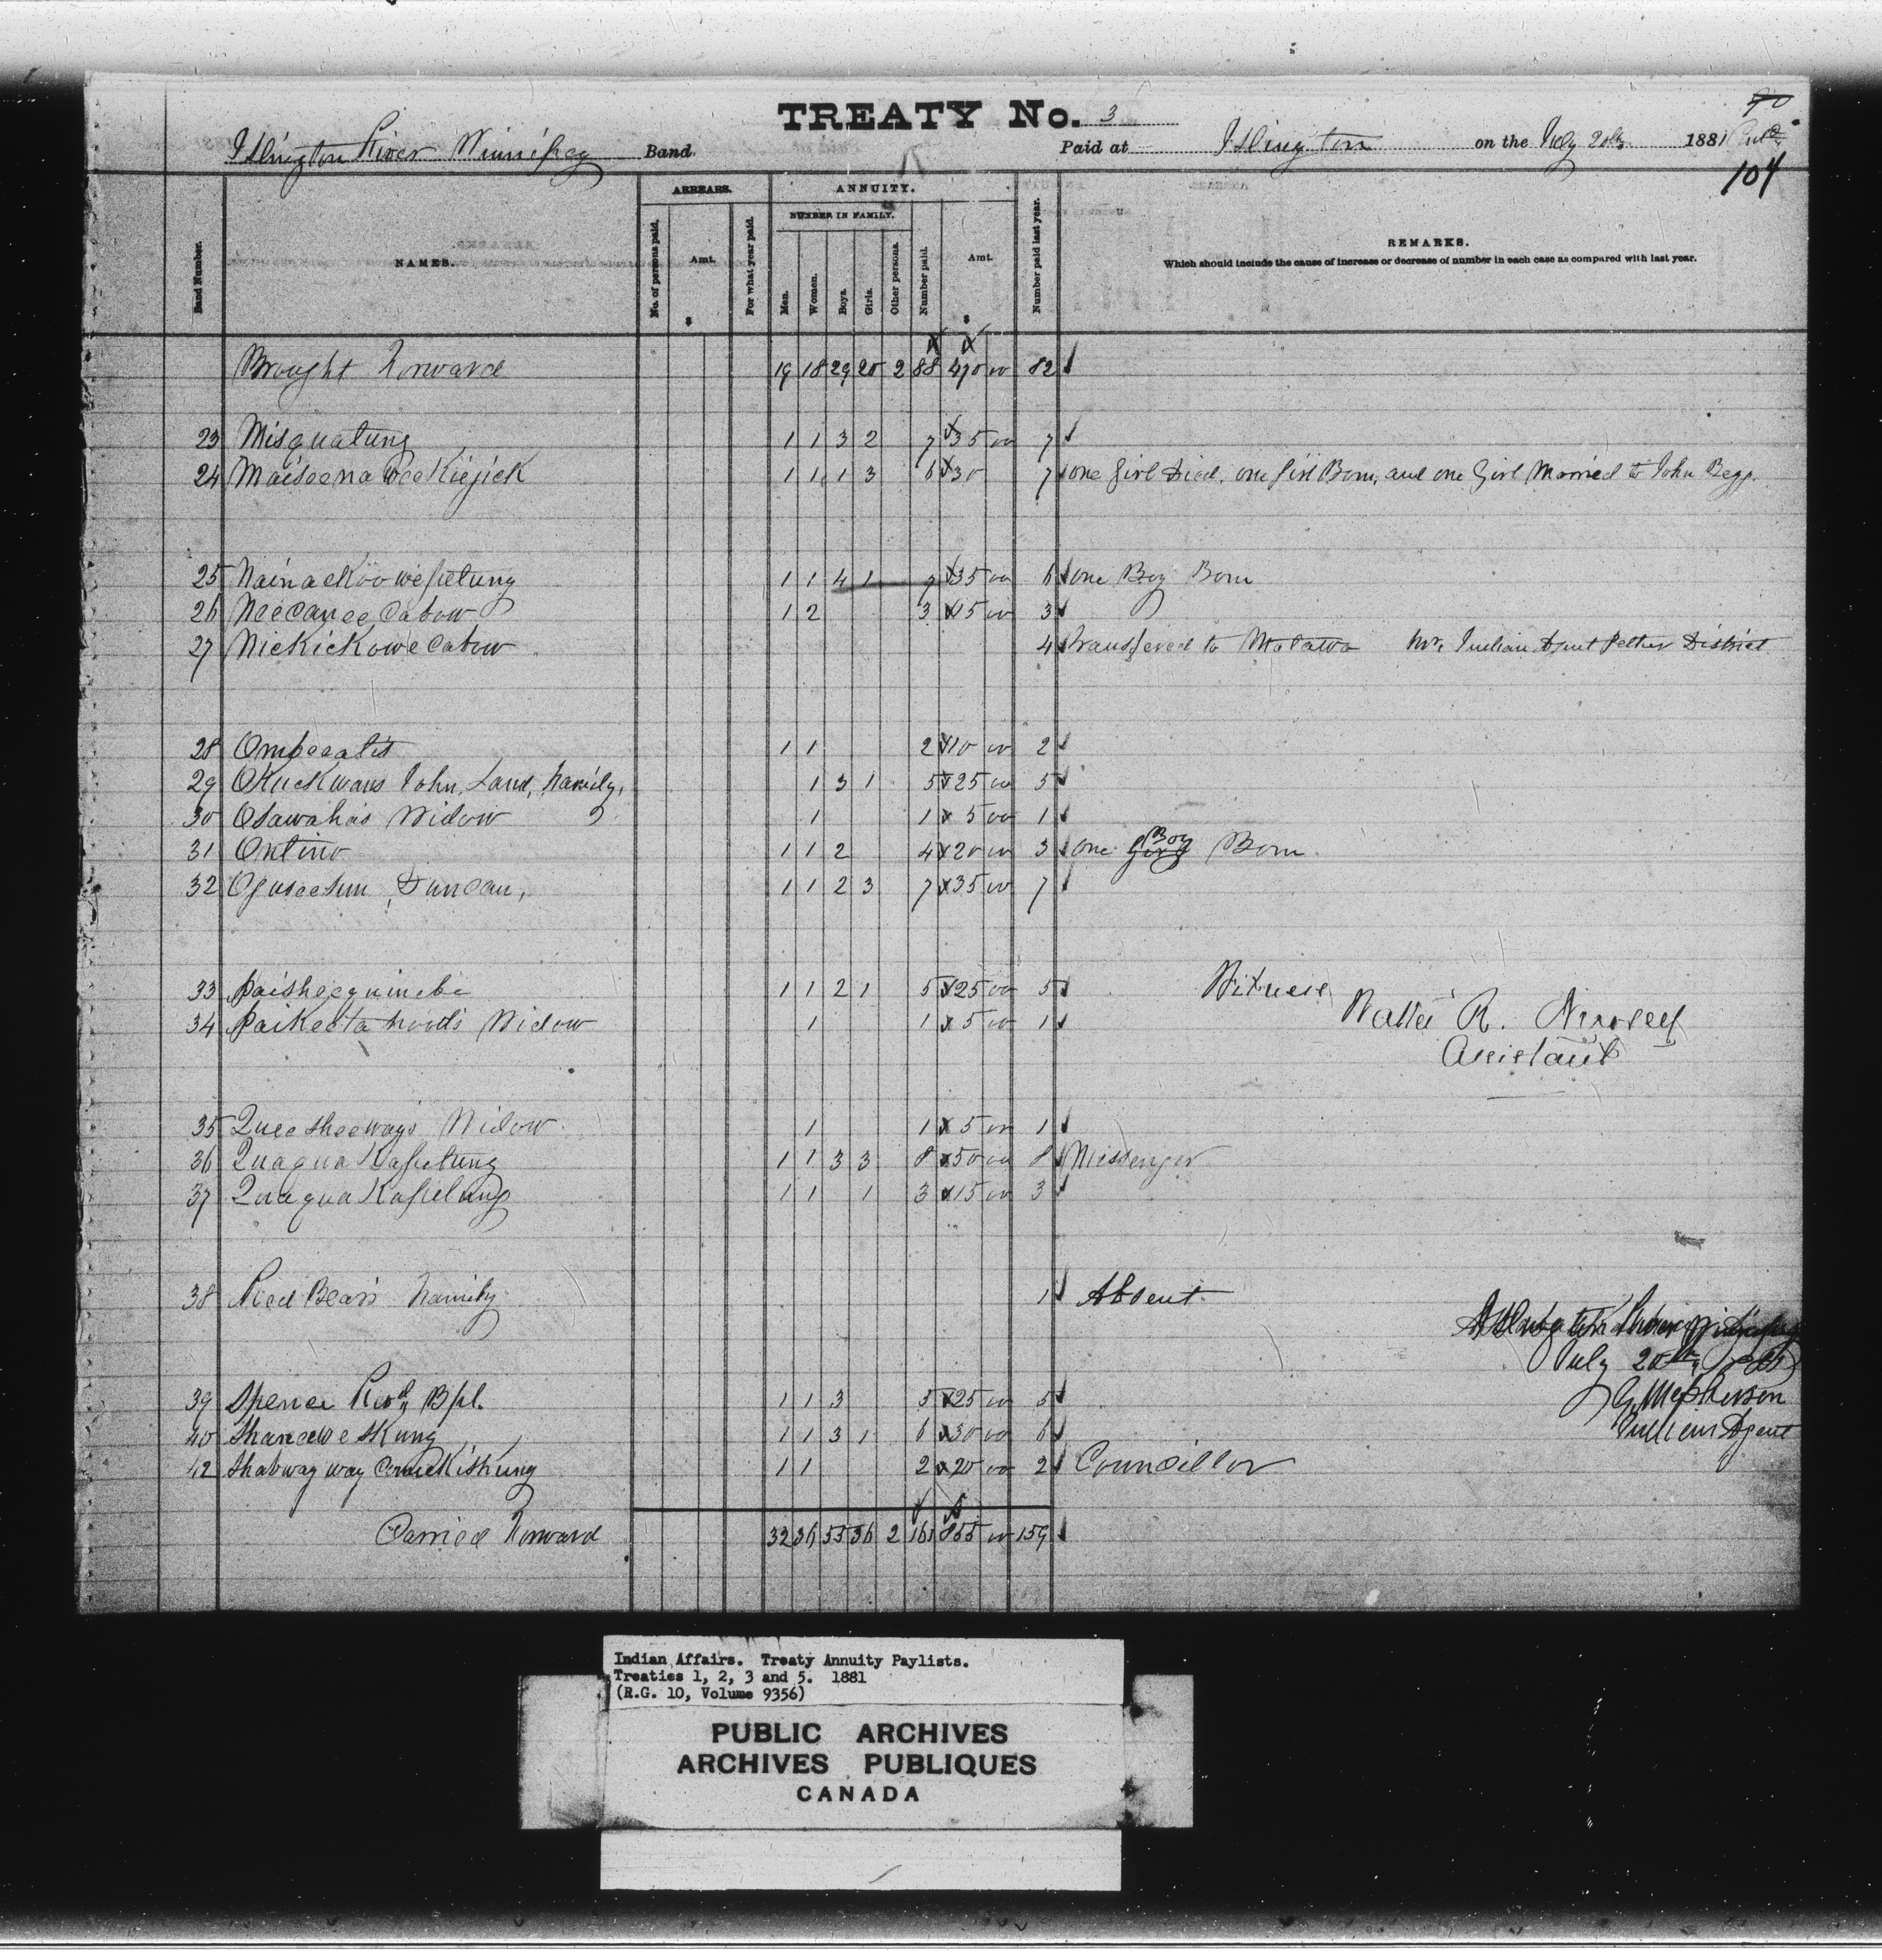 TREATY No. 3
90
Islington River Winnipeg Band. Paid at Islington on the July 20th 1881
104
Band Number. NAMES. ARREARS. No. of persons paid. Amt. $ For what year paid. ANNUITY. NUMBER IN FAMILY. Men. Women. Boys. Girls. Other persons. Number paid. Amt. $ Number paid last year. REMARKS.
Which should include the cause of increase or decrease of number in each case as compared with last year.
Brought Forward 19 18 29 20 2 88 470 00 82
23 Misquatung 1 1 3 2 7 35 00 7
24 Maiseenawee Kiejick 1 1 1 3 6 30 7 one Girl Died, one Girl Born, and one Girl Married to John Begg.
25 Nainackoowepetung 1 1 4 1 7 35 00 6 one Boy Born
26 Neecanee Cabow 1 2 3 15 00 3
27 Niekickowe Cabow 4 Transfered to Indian Agent Pether District
28 Ombeealis 1 1 2 10 00 2
29 Okuckwans John, Land, Family, 1 3 1 5 25 00 5
30 Osawahas Widow 1 1 5 00 1
31 Ontino 1 1 2 4 20 00 3 one Girl Boy Born
32 Oguseesun, Duncan, 1 1 2 3 7 35 00 7
33 Paisheequinebe 1 1 2 1 5 25 00 5 Witness
34 Paikeeta Widow 1 1 5 00 1 R.
Assistant
35 Queesheeways Widow 1 1 5 00 1
36 Quaqua Kapetung 1 1 3 3 8 50 00 8 Messenger
37 Quaqua Kapetung 1 1 1 3 15 00 3
38 Red Bear's Family 1 Absent
Islington River Winnipeg
July 20th 1881
39 Spence Rod. Bpt. 1 1 3 5 25 00 5 G McPherson
40 Shanewe Skung 1 1 3 1 6 30 00 6 Indian Agent
42 Shabway way Comekiskung 1 1 2 20 00 2 Councillor
Carried Forward 32 36 55 36 2 161 855 00 159
Indian Affairs. Treaty Annuity Paylists.
Treaties 1, 2, 3 and 5. 1881
(R.G. 10, Volume 9356)
PUBLIC ARCHIVES
ARCHIVES PUBLIQUES
CANADA